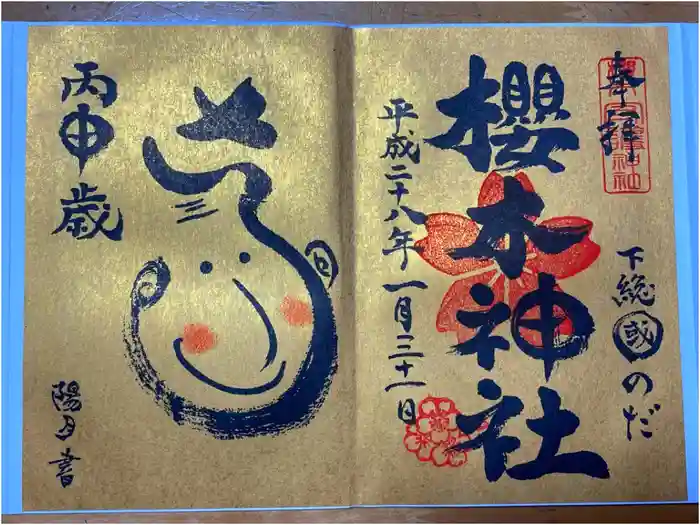 奉拝
下総國のだ
櫻木神社
平成二十八年一月三十一日
丙申歳